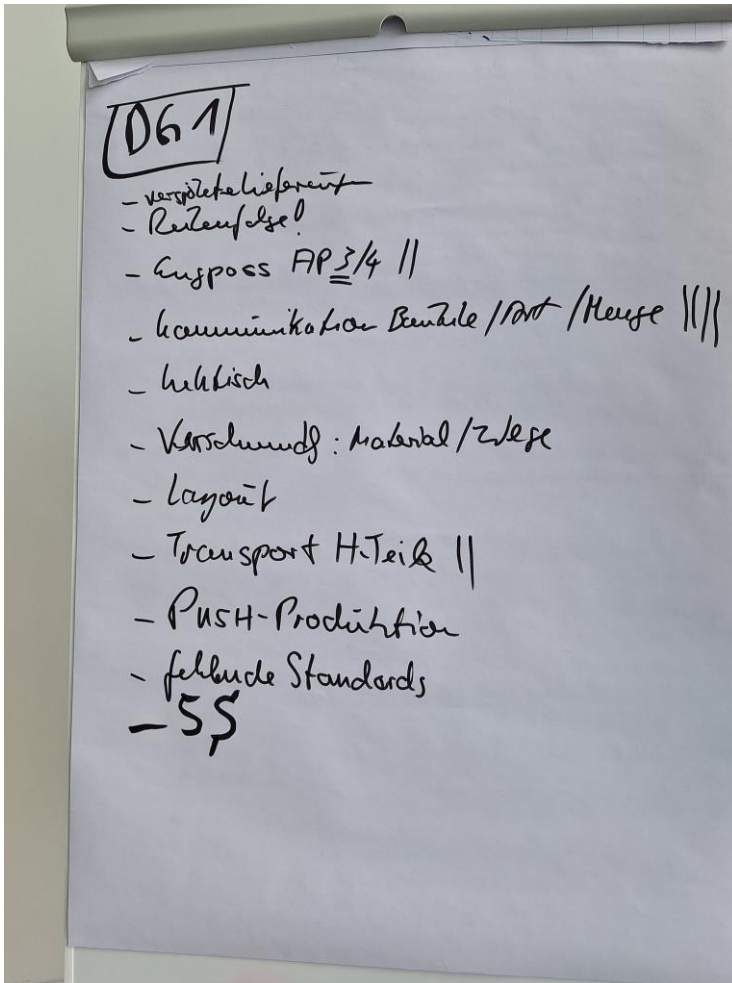 DG1
- verspätete Lieferung
- Reihenfolge!
- Engpass AP 3/4 ||
- Kommunikation Bauteile / Art / Menge ||||
- hektisch
- Verschwendg : Material / Wege
- Layout
- Transport H-Teile ||
- PUSH-Produktion
- fehlende Standards
- 5S